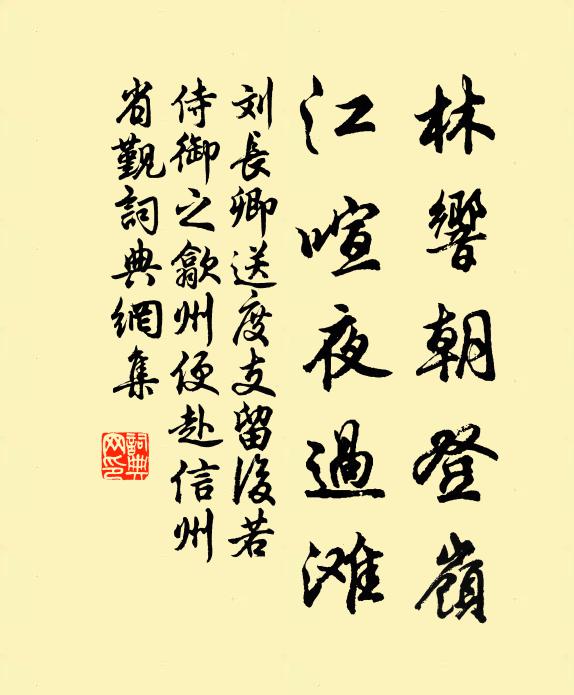 林響朝登嶺
江喧夜過滩
刘長卿送度支留後若
侍御之歙州便赴信州
省觐詞典網集
詞典
网印